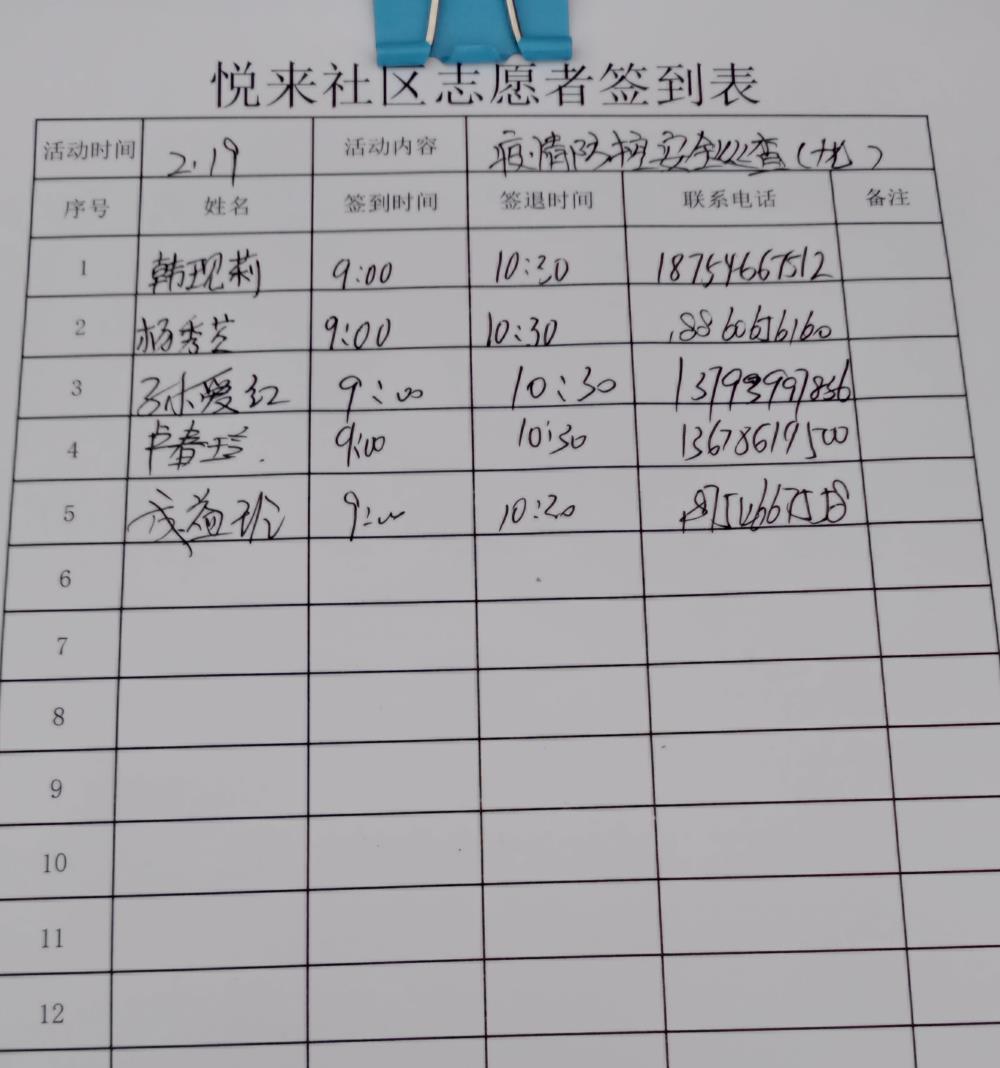 悦来社区志愿者签到表
活动时间 2.19 活动内容 疫情防控安全巡查
序号 姓名 签到时间 签退时间 联系电话 备注
1 韩现莉 9:00 10:30 18754667512
2 杨秀芝 9:00 10:30 18860656160
3 孙爱红 9:00 10:30
4 卢春玲 9:00 10:30 13678619500
5 9:00 10:20 18754667558
6
7
8
9
10
11
12